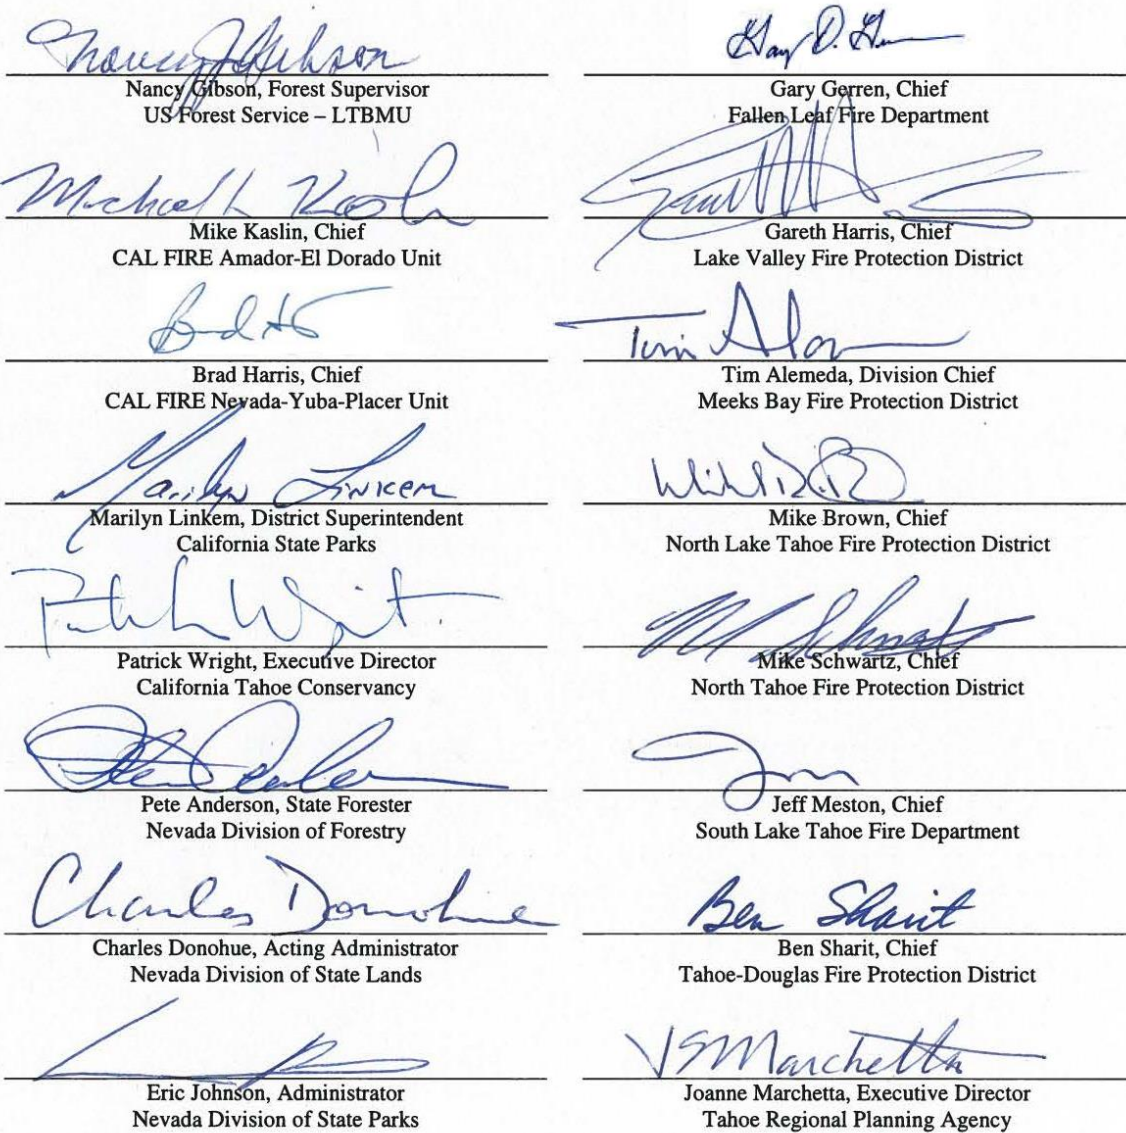 Nancy J Gibson
Nancy Gibson, Forest Supervisor
US Forest Service – LTBMU
Michael L Kaslin
Mike Kaslin, Chief
CAL FIRE Amador-El Dorado Unit
Brad Harris, Chief
CAL FIRE Nevada-Yuba-Placer Unit
Marilyn Linkem
Marilyn Linkem, District Superintendent
California State Parks
Patrick Wright
Patrick Wright, Executive Director
California Tahoe Conservancy
Pete Anderson, State Forester
Nevada Division of Forestry
Charles Donohue
Charles Donohue, Acting Administrator
Nevada Division of State Lands
Eric Johnson, Administrator
Nevada Division of State Parks
Gary Gerren, Chief
Fallen Leaf Fire Department
Gareth Harris, Chief
Lake Valley Fire Protection District
Tim
Tim Alemeda, Division Chief
Meeks Bay Fire Protection District
Mike Brown, Chief
North Lake Tahoe Fire Protection District
M Schwartz
Mike Schwartz, Chief
North Tahoe Fire Protection District
Jeff Meston, Chief
South Lake Tahoe Fire Department
Ben Sharit
Ben Sharit, Chief
Tahoe-Douglas Fire Protection District
JSMarchetta
Joanne Marchetta, Executive Director
Tahoe Regional Planning Agency